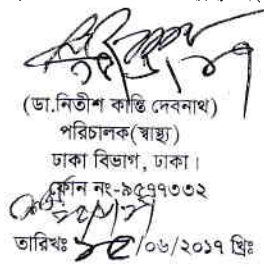 (ডা.নিতীশ কান্তি দেবনাথ)
পরিচালক(স্বাস্থ্য)
ঢাকা বিভাগ, ঢাকা।
ফোন নং-৯৫৭৭৩৩২
তারিখঃ ১৫/০৬/২০১৭ খ্রিঃ